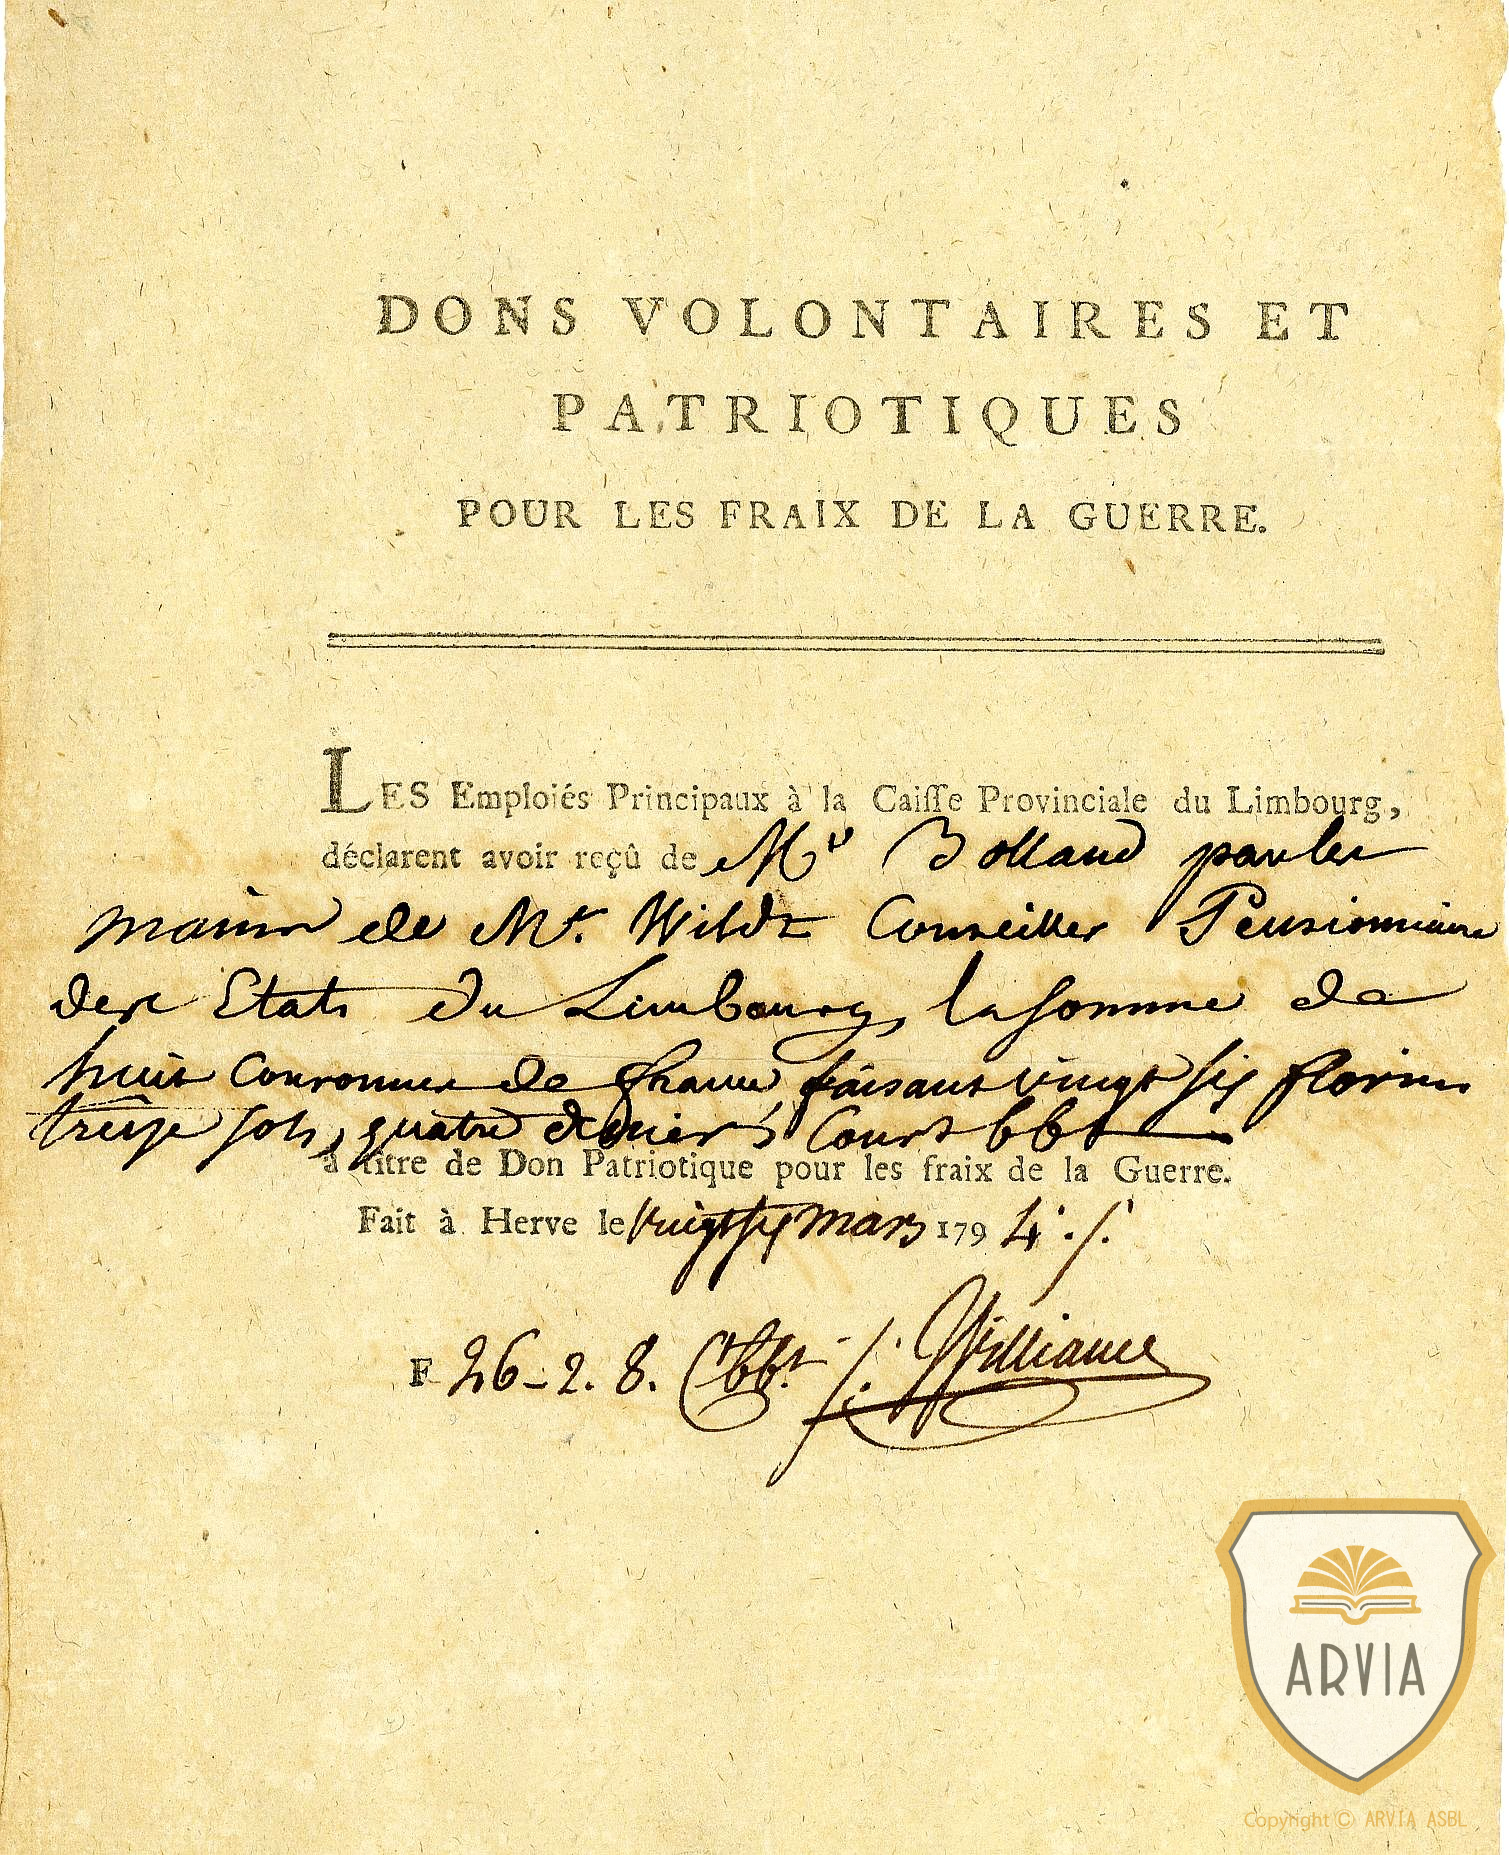 DONS VOLONTAIRES ET
PATRIOTIQUES
POUR LES FRAIX DE LA GUERRE.
LES Emploiés Principaux à la Caisse Provinciale du Limbourg,
déclarent avoir reçû de Mr Bolland par les
mains de Mr. Wildt Conseiller Pensionnaire
des Etats du Limbourg, la somme de
huit Couronnes de france faisant vingt six florins
treize sols, quatre deniers Court bbt
à titre de Don Patriotique pour les fraix de la Guerre.
Fait à Herve le vingt six mars 1794. /.
F 26-2. 8. Cbbt /. Williams
ARVIA
Copyright © ARVIA ASBL